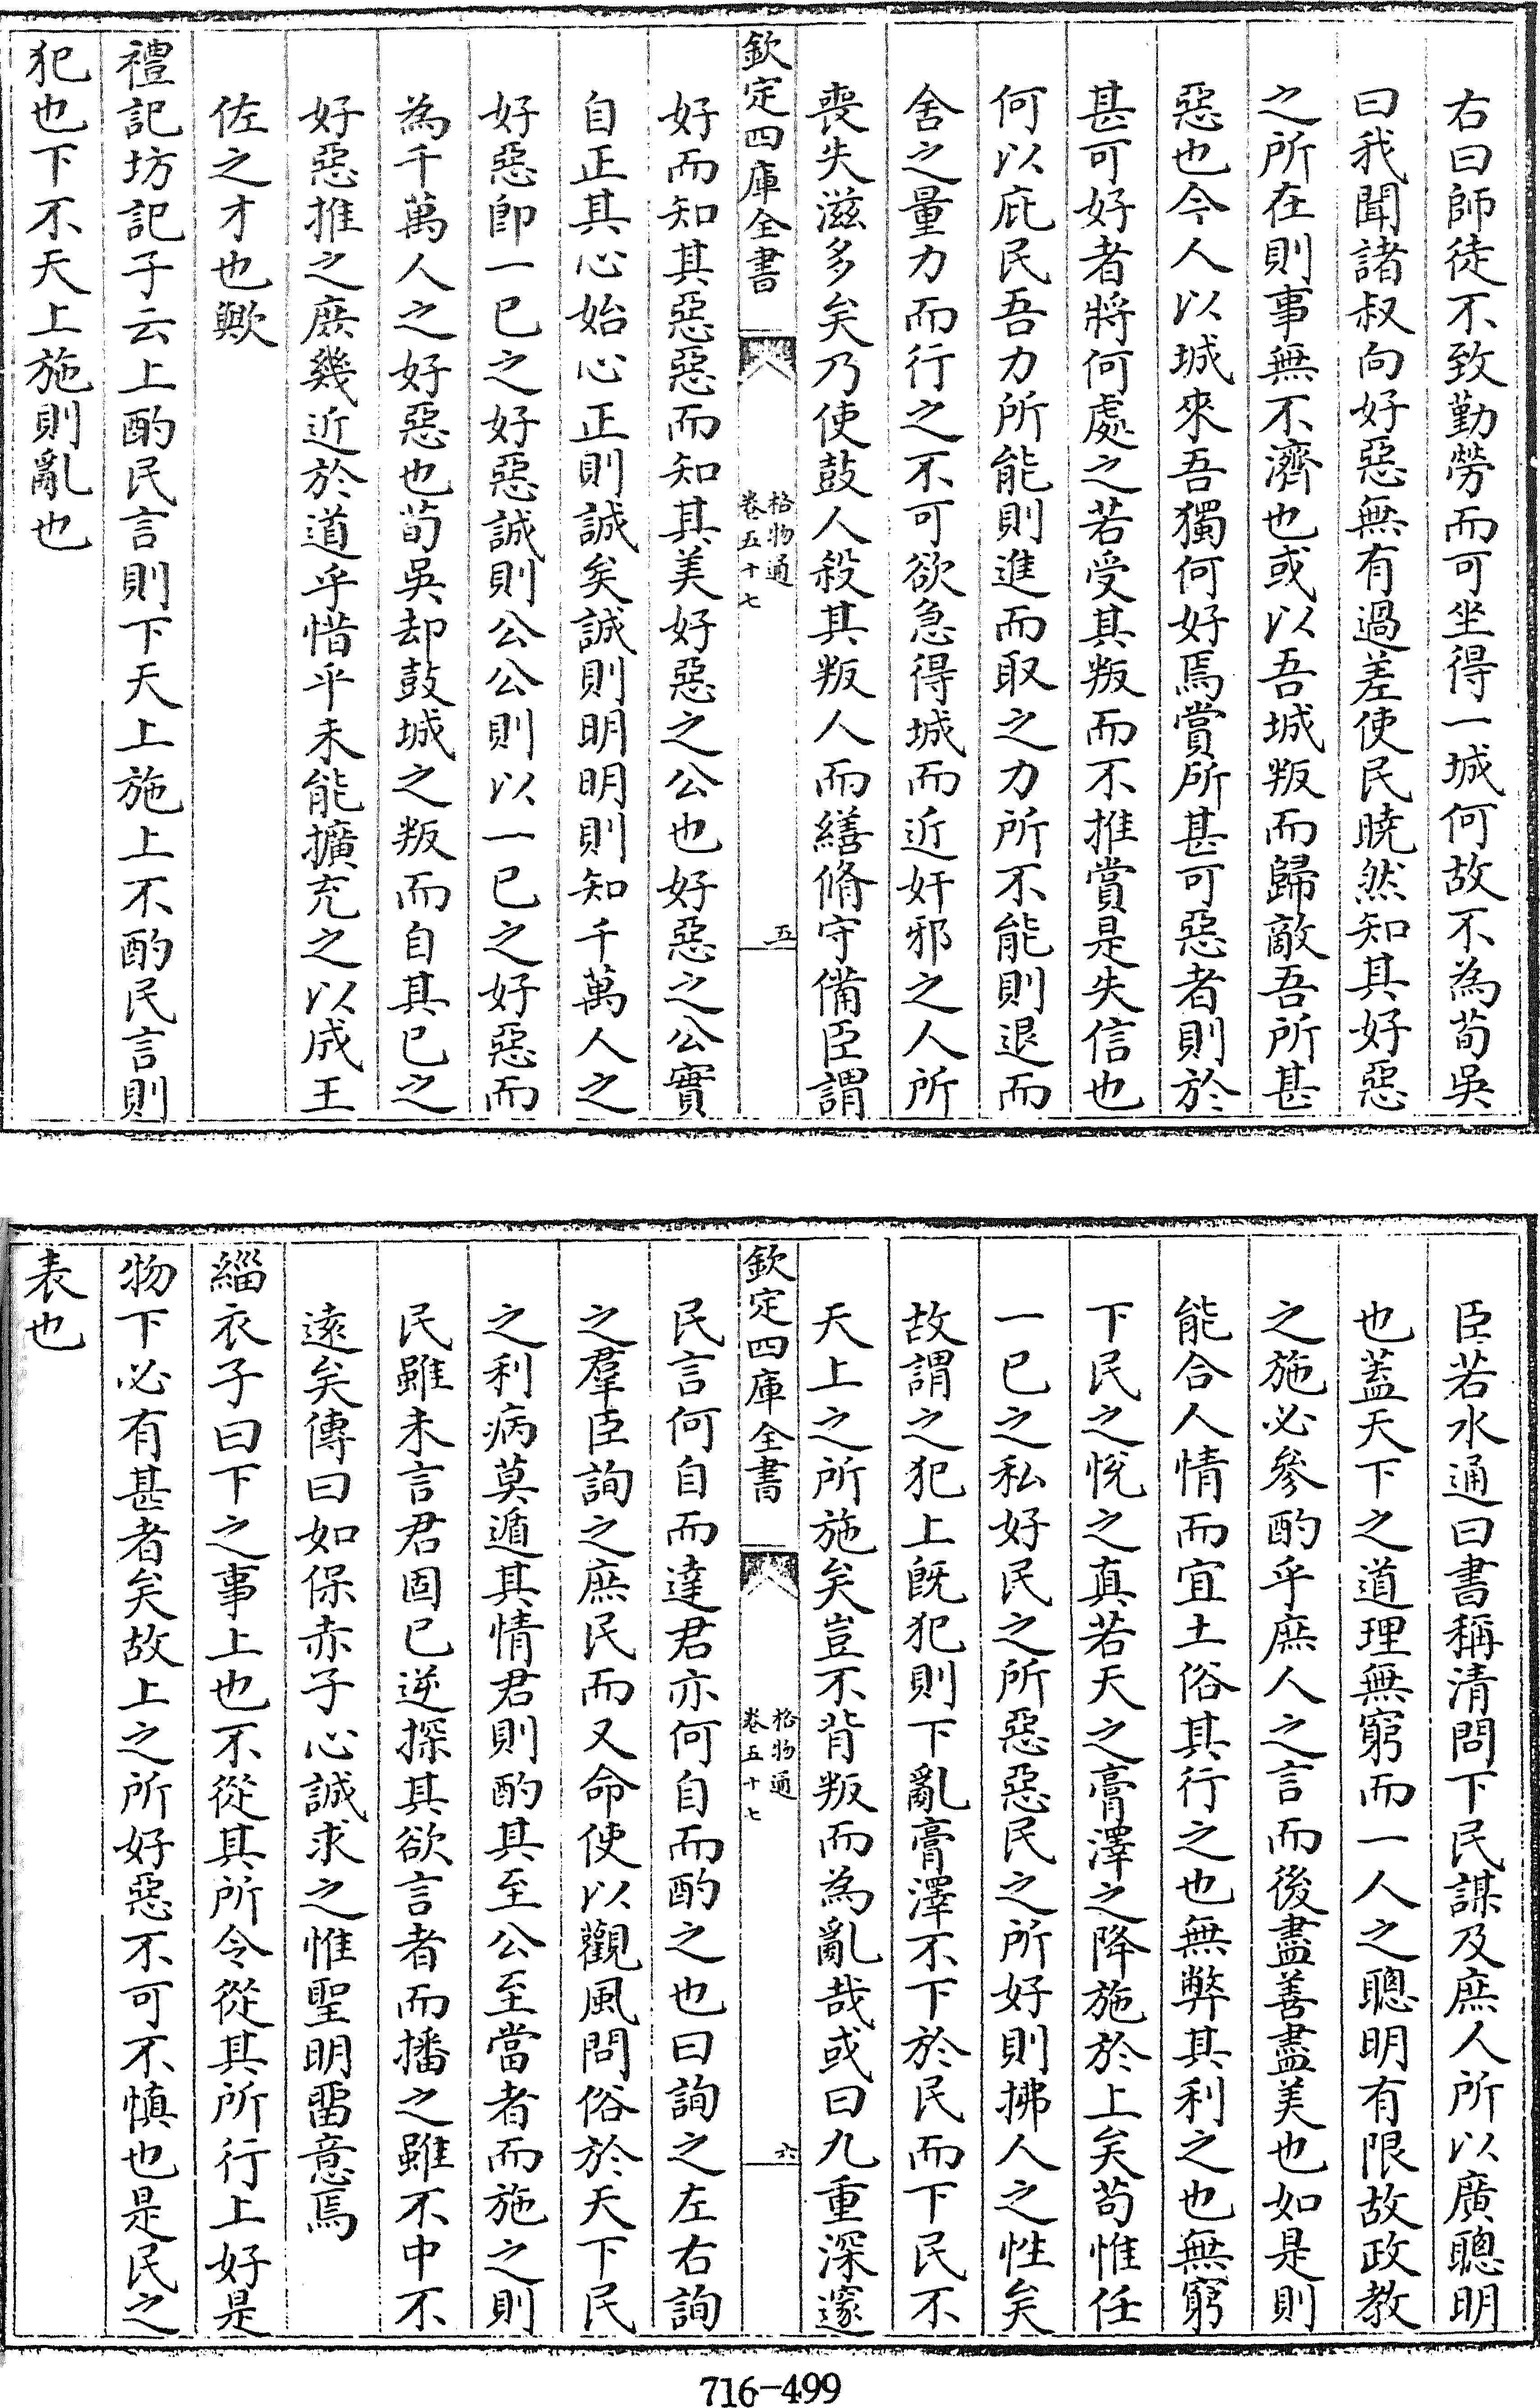 右曰師徒不致勤勞而可坐得一城何故不為荀吳
曰我聞諸叔向好惡無有過差使民曉然知其好惡
之所在則事無不濟也或以吾城叛而歸敵吾所甚
惡也今人以城來吾獨何好焉賞所甚可惡者則於
甚可好者將何處之若受其叛而不推賞是失信也
何以庇民吾力所能則進而取之力所不能則退而
舍之量力而行之不可欲急得城而近奸邪之人所
喪失滋多矣乃使鼓人殺其叛人而繕脩守備臣謂
欽定四庫全書
格物通
卷五十七
五
好而知其惡惡而知其美好惡之公也好惡之公實
自正其心始心正則誠矣誠則明明則知千萬人之
好惡即一已之好惡誠則公公則以一已之好惡而
為千萬人之好惡也荀吳却鼓城之叛而自其已之
好惡推之庶幾近於道乎惜乎未能擴充之以成王
佐之才也歟
禮記坊記子云上酌民言則下天上施上不酌民言則
犯也下不天上施則亂也
臣若水通曰書稱清問下民謀及庶人所以廣聰明
也蓋天下之道理無窮而一人之聰明有限故政教
之施必參酌乎庶人之言而後盡善盡美也如是則
能合人情而宜土俗其行之也無弊其利之也無窮
下民之悅之真若天之膏澤之降施於上矣苟惟任
一已之私好民之所惡惡民之所好則拂人之性矣
故謂之犯上旣犯則下亂膏澤不下於民而下民不
天上之所施矣豈不背叛而為亂哉或曰九重深邃
欽定四庫全書
格物通
卷五十七
六
民言何自而達君亦何自而酌之也曰詢之左右詢
之羣臣詢之庶民而又命使以觀風問俗於天下民
之利病莫遁其情君則酌其至公至當者而施之則
民雖未言君固已逆探其欲言者而播之雖不中不
遠矣傳曰如保赤子心誠求之惟聖明畱意焉
緇衣子曰下之事上也不從其所令從其所行上好是
物下必有甚者矣故上之所好惡不可不慎也是民之
表也
716-499